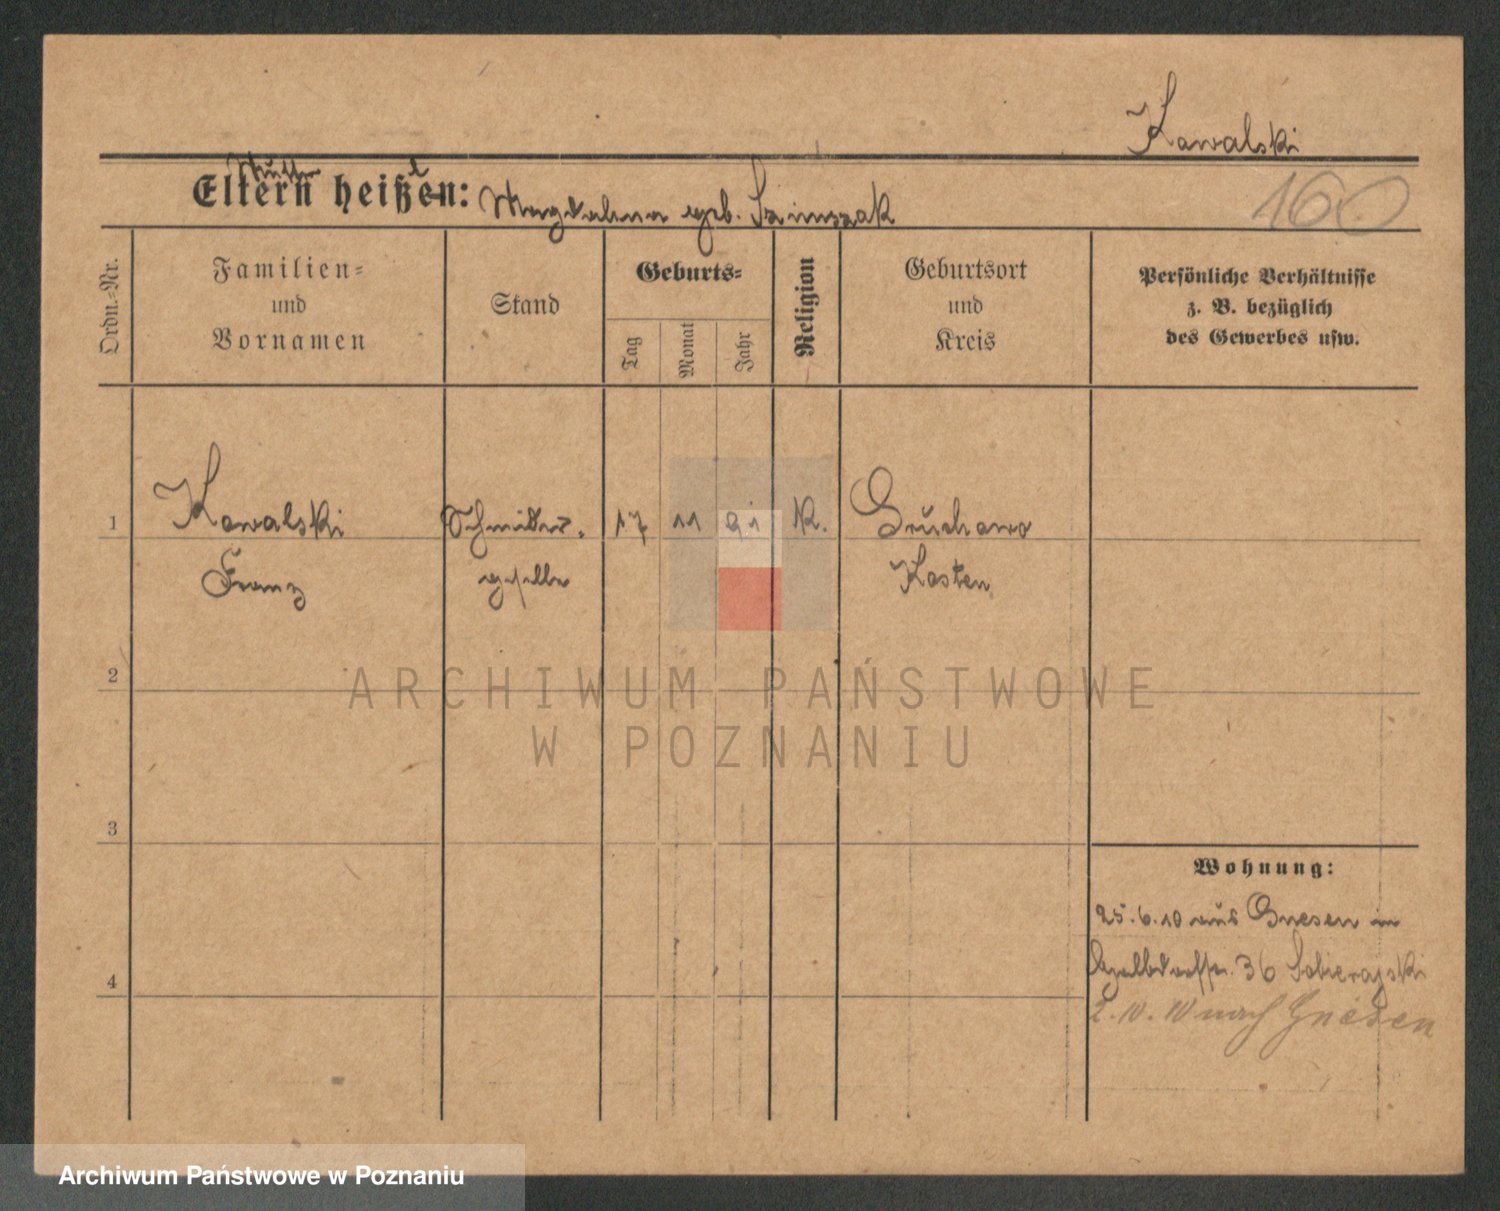 Kawalski
Mutter t
Eltern heißen: Magdalena geb. Szimszak
160
Ordn.-Nr.
Familien- und Vornamen
Stand
Geburts-
Tag
Monat
Jahr
Religion
Geburtsort und Kreis
Persönliche Verhältnisse z. B. bezüglich des Gewerbes usw.
1 Kowalski Schneider- 17 11 91 K. Gruchowo
Franz geselle Kosten
ARCHIWUM PAŃSTWOWE
W POZNANIU
2
3
Wohnung:
25.6.10 aus Gnesen in
36 Sobierajski
4
2.10.10 nach Gnesen
Archiwum Państwowe w Poznaniu